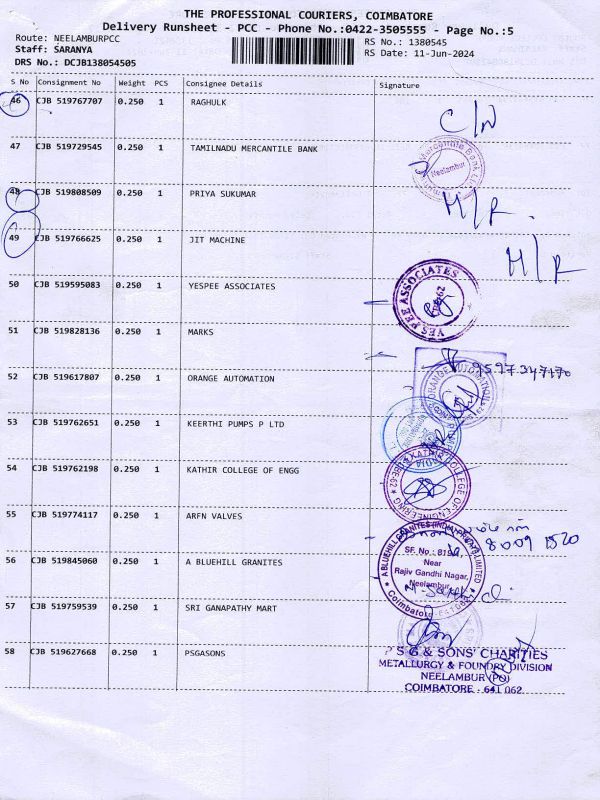 THE PROFESSIONAL COURIERS, COIMBATORE
Delivery Runsheet - PCC - Phone No.:0422-3505555 - Page No.:5
Route: NEELAMBURPCC
Staff: SARANYA
DRS No.: DCJB138054505
RS No.: 1380545
RS Date: 11-Jun-2024
S No Consignment No Weight PCS Consignee Details Signature
46 CJB 519767707 0.250 1 RAGHULK C/N
47 CJB 519729545 0.250 1 TAMILNADU MERCANTILE BANK
Neelambur
48 CJB 519808509 0.250 1 PRIYA SUKUMAR H/R
49 CJB 519766625 0.250 1 JIT MACHINE H/R
50 CJB 519595083 0.250 1 YESPEE ASSOCIATES
YES PEE ASSOCIATES
51 CJB 519828136 0.250 1 MARKS
52 CJB 519617807 0.250 1 ORANGE AUTOMATION
53 CJB 519762651 0.250 1 KEERTHI PUMPS P LTD
54 CJB 519762198 0.250 1 KATHIR COLLEGE OF ENGG
KATHIR COLLEGE OF ENGINEERING
55 CJB 519774117 0.250 1 ARFN VALVES
56 CJB 519845060 0.250 1 A BLUEHILL GRANITES
A BLUEHILL GRANITES (INDIA) PRIVATE LIMITED
SF. No.: 819
Near
Rajiv Gandhi Nagar,
Neelambur,
Coimbatore
57 CJB 519759539 0.250 1 SRI GANAPATHY MART
58 CJB 519627668 0.250 1 PSGASONS
P S G & SONS' CHARITIES
METALLURGY & FOUNDRY DIVISION
NEELAMBUR (PO)
COIMBATORE - 641 062